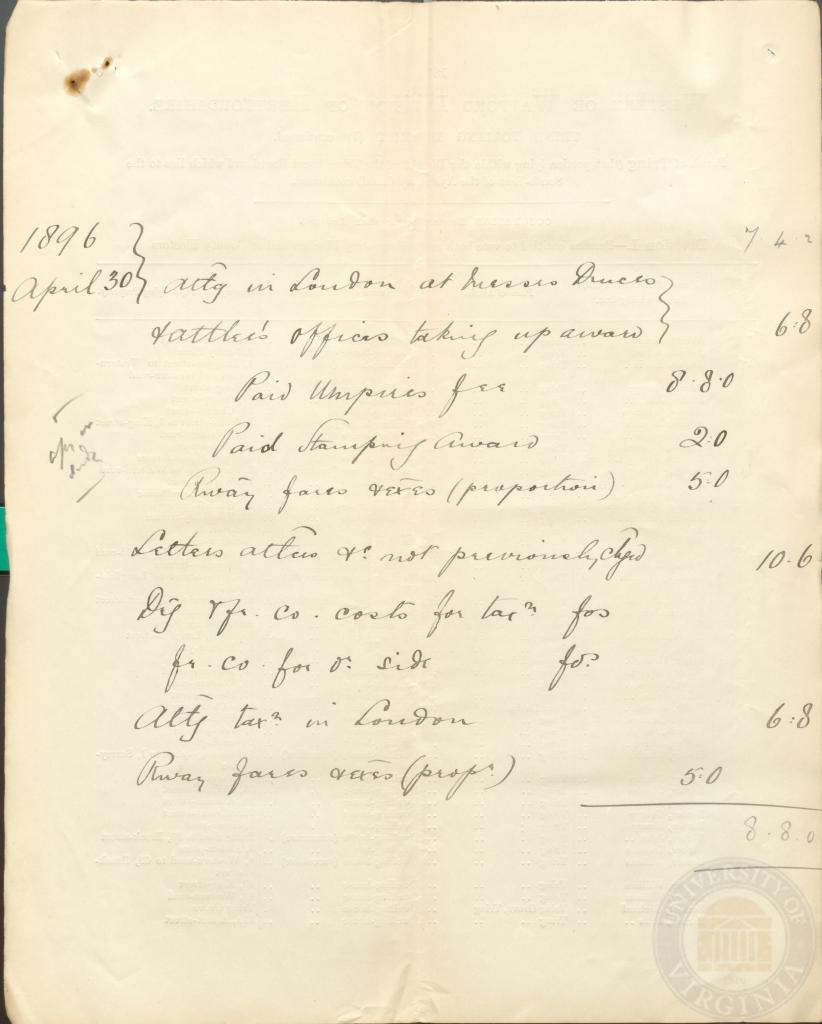 7. 4. 2
1896
April 30
Attg in London at Messrs Druces
& Attlee's offices taking up award 6:8
Paid Umpires fee 8.8.0
Paid Stamping Award 2:0
Rway fares & exes (proportion) 5.0
Letters attces &c not previously chgd 10.6
Dg & fr. co. costs for taxn fos
fr. co. for or side fos
Attg taxn in London 6:8
Rway fares & exes (propn) 5.0
8.8.0
UNIVERSITY OF VIRGINIA
1819